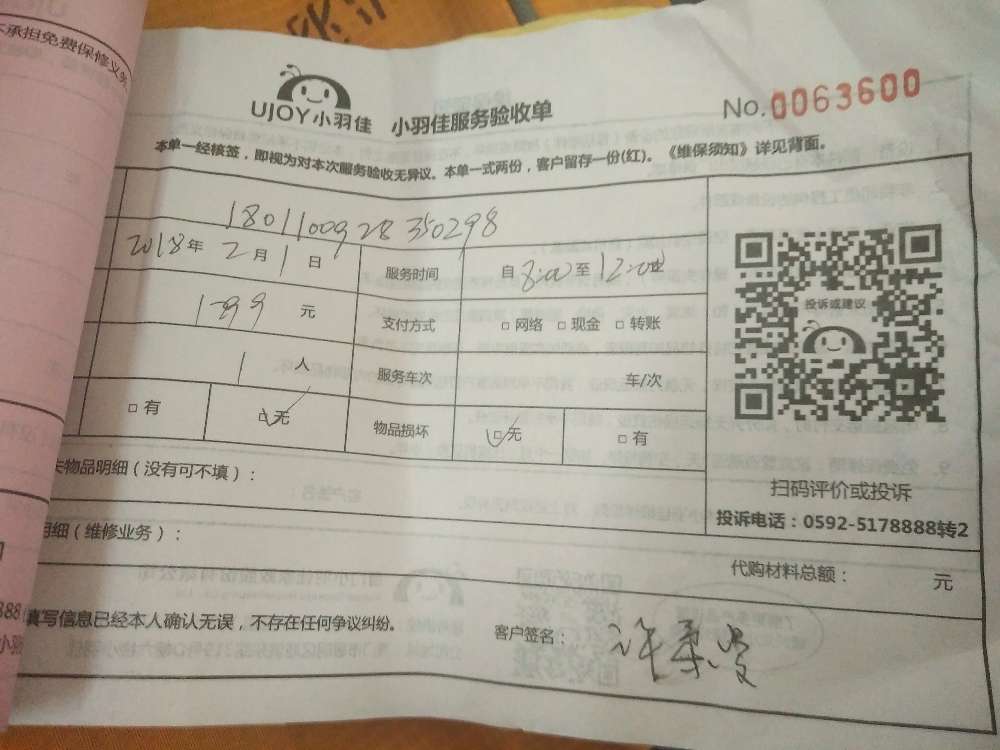 不承担免费保修义务
UJOY小羽佳 小羽佳服务验收单 No.0063600
本单一经核签，即视为对本次服务验收无异议。本单一式两份，客户留存一份(红)。《维保须知》详见背面。
1801100928350298
2018年2月1日 服务时间 自8:00至12:00
199元 支付方式 □网络 □现金 □转账
1人 服务车次 车/次
□有 □无 物品损坏 □无 □有
投诉或建议
扫码评价或投诉
投诉电话：0592-5178888转2
失物品明细（没有可不填）：
明细（维修业务）：
代购材料总额： 元
填写信息已经本人确认无误，不存在任何争议纠纷。
客户签名：